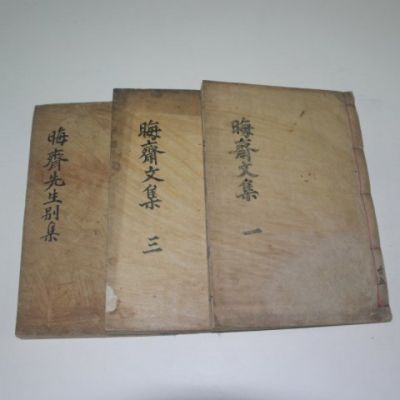 晦齋文集 一
晦齋文集 三
晦齋先生別集